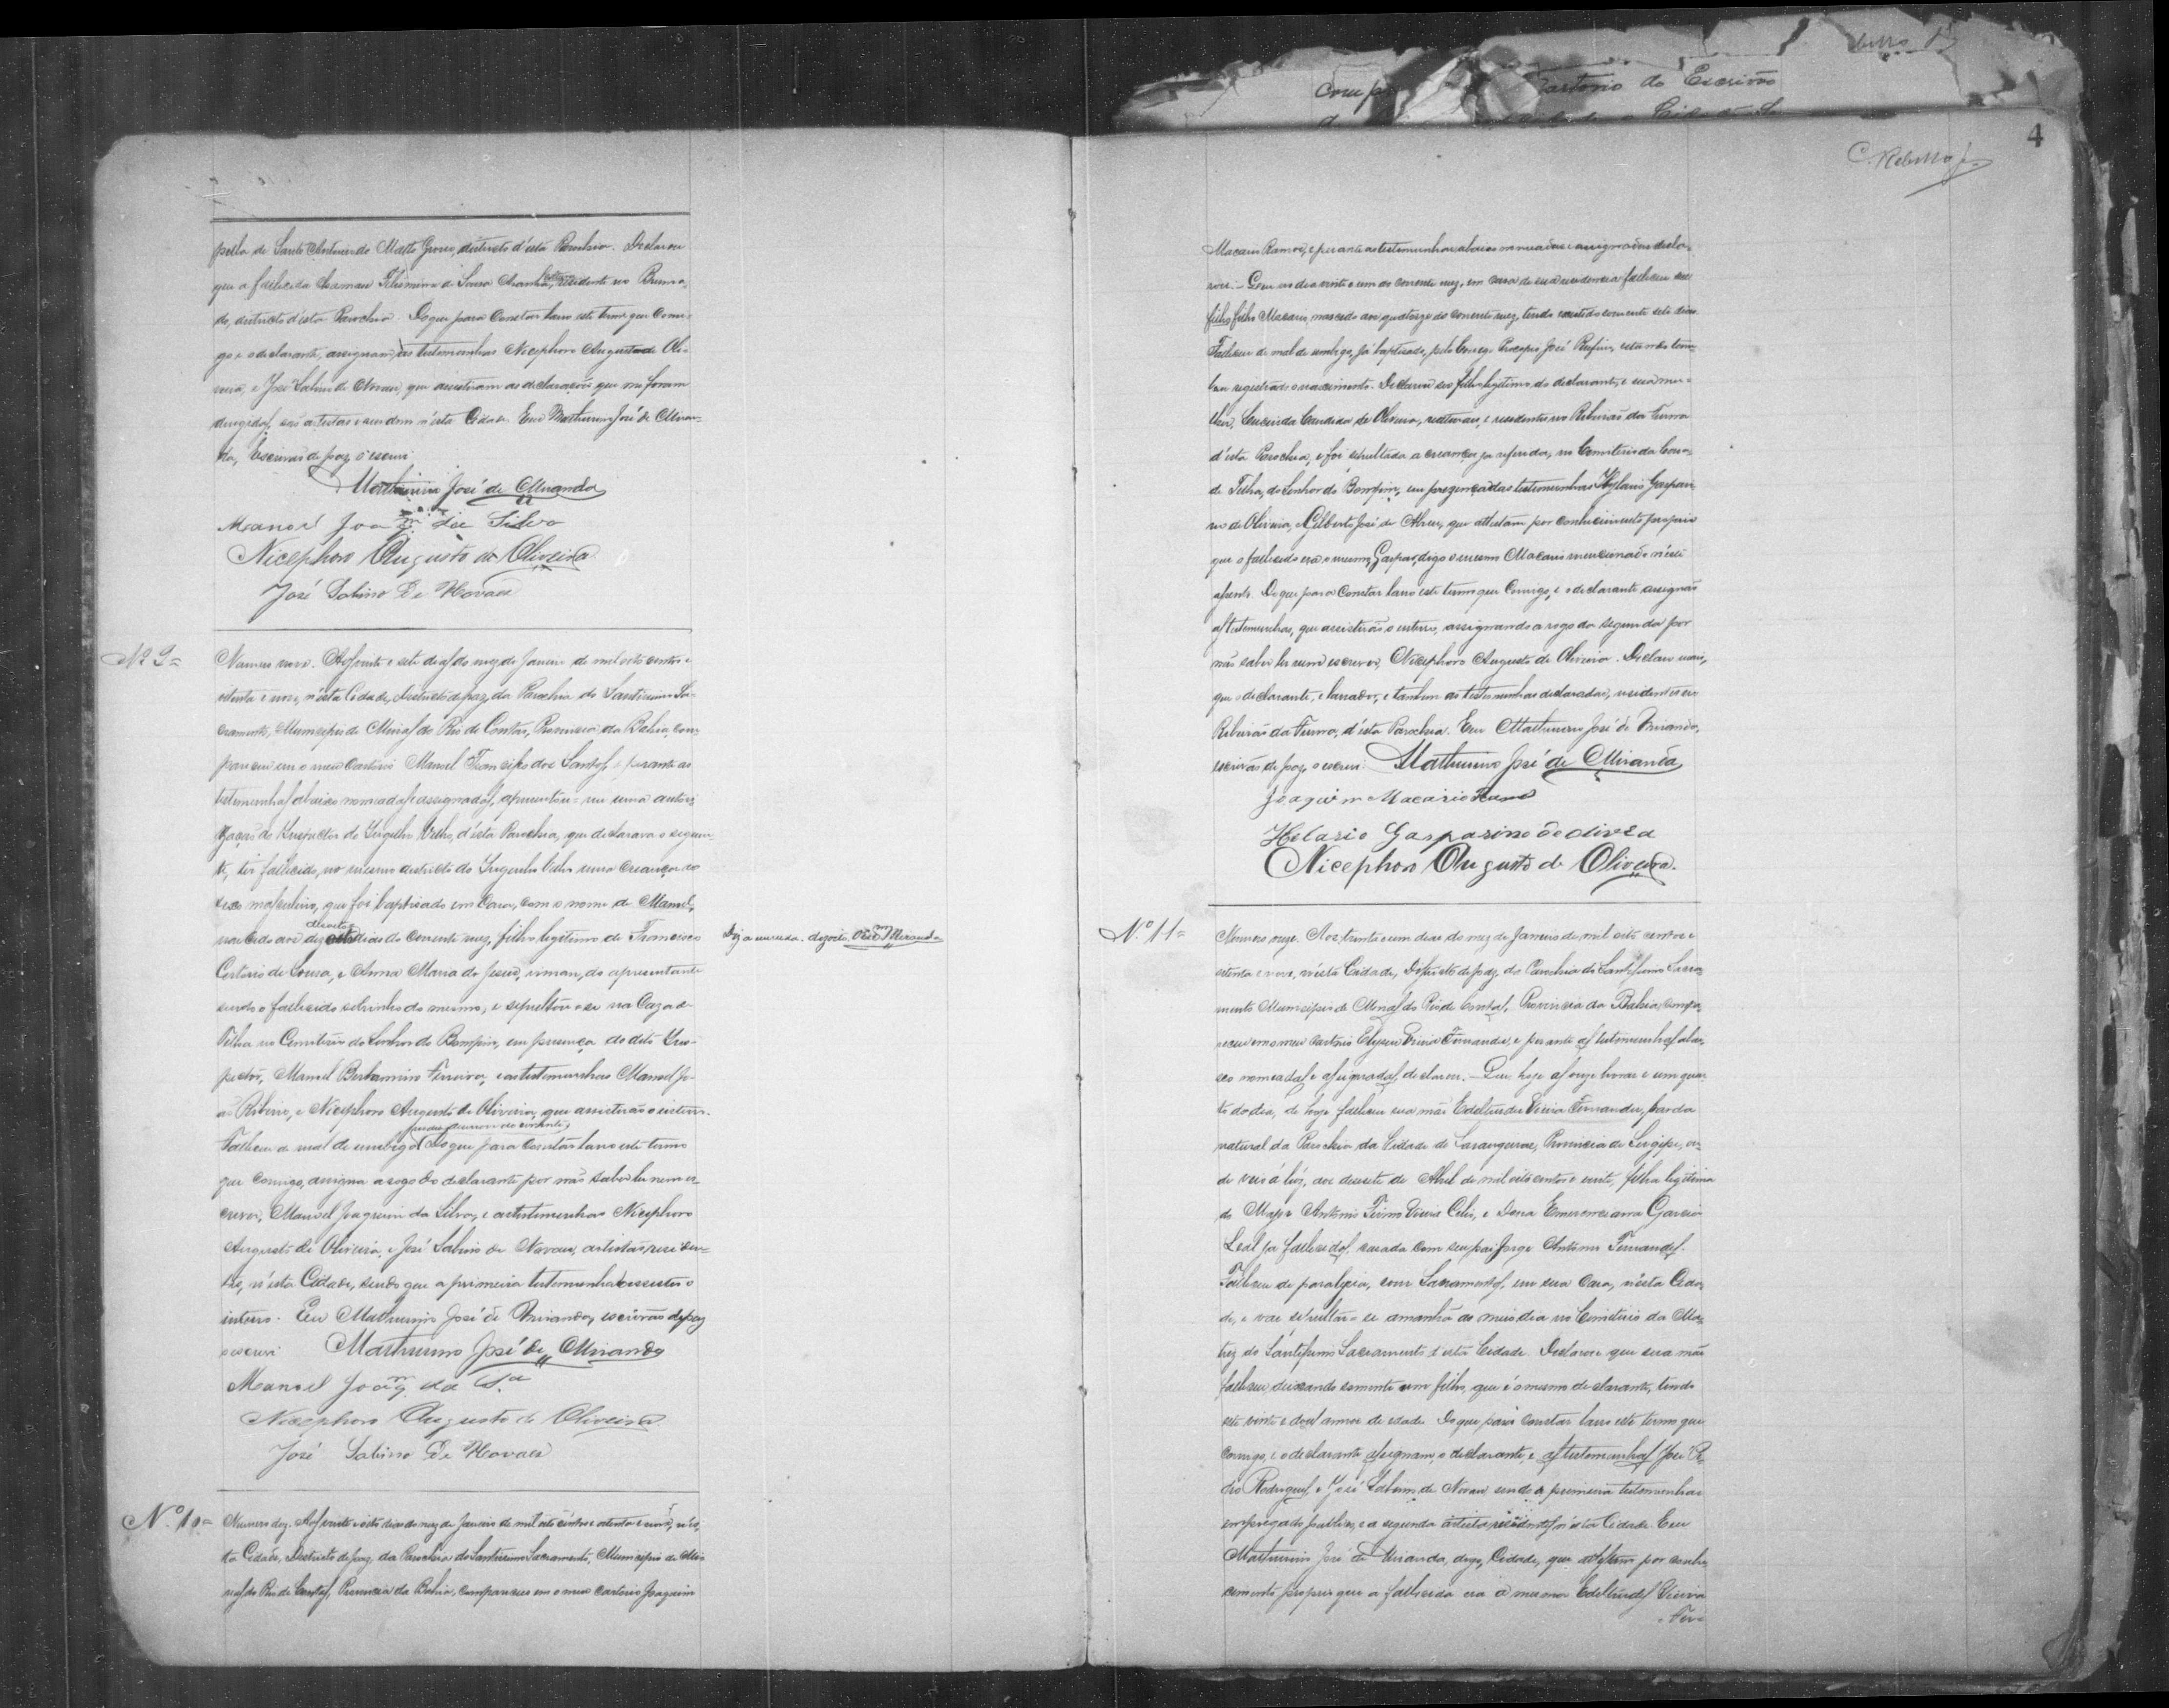 pella de Santo Antonio do Matto Grosso, districto d'esta Parochia. Declarou
que a fallecida chamava Felismina de Sousa Aranha, residente no Bruma-
do, districto d'esta Parochia. Do que para constar lavro este termo que comi-
go e o declarante, assignam, as testemunhas Nicephoro Augusto de Oli-
veira, e José Sabino de Novaes, que assistiram as declarações que me foram
dirigidas, são artistas e residem n'esta Cidade. Eu Mathurino José de Miran-
da, Escrivão de paz o escrevi
Mathurino José de Miranda
Manoel Joaqm da Silva
Nicephoro Augusto de Oliveira
José Sabino De Novaes
Nº 9=
Numero nove. Aos vinte e sete dias do mez de Janeiro de mil oito centos e
setenta e nove, n'esta Cidade, Districto de paz da Parochia do Santissimo Sa-
cramento, Municipio de Minas do Rio de Contas, Provincia da Bahia, com-
pareceu em o meu Cartorio Manoel Francisco dos Santos, e perante as
testemunhas abaixo nomeadas e assignadas, apresentou-me uma autori-
zação do Inspector do Engenho Velho, d'esta Parochia, que declarava o seguin-
te, ter fallecido, no mesmo districto do Engenho Velho uma creança do
sexo masculino, que foi baptisado em casa, com o nome de Manoel,
nascido aos dezoito dias do corrente mez, filho legitimo de Francisco
dezoito
Diz a emenda. dezoito. Miranda
de Sousa, e Anna Maria de Jesus, irman, do apresentante
sendo o fallecido sobrinho do mesmo, e sepultou-se na Caza de
Telha no Cemiterio do Senhor do Bomfim, em presença do dito Ins-
pector, Manoel Berlamino Ferreira, e as testemunhas Manoel Jo-
ão Ribeiro, e Nicephoro Augusto de Oliveira, que assistirão o interro.
Falleceu de mal de umbigo. Do que para constar lavro este termo
que comigo, assigna a rogo do declarante por não saber ler nem es-
crever, Manoel Joaquim da Silva, e as testemunhas Nicephoro
Augusto de Oliveira, e José Sabino de Novaes, artistas, residen-
tes, n'esta Cidade, sendo que a primeira testemunha assistio o
interro. Eu Mathurino José de Miranda, escrivão de paz
o escrevi Mathurino José de Miranda
Manoel Joaqm da Sa
Nicephoro Augusto de Oliveira
José Sabino De Novaes
N.º 10=
Numero dez. Aos vinte e oito dias do mez de Janeiro de mil oito centos e setenta e nove, n'es-
ta Cidade, Districto de paz, da Parochia do Santissimo Sacramento, Municipio de Mi-
nas do Rio de Contas, Provincia da Bahia, compareceu em o meu cartorio Joaquim
Cartorio do Escrivão
4
C. Rebello
Macario Ramos, e perante as testemunhas abaixo nomeadas e assignadas decla-
rou:- Que no dia vinte e um do corrente mez, em casa de sua residencia falleceu seu
filho Macario, nascido aos quatorze do corrente mez, tendo existido somente sete dias.
Falleceu de mal de umbigo, já baptisado, pelo Conego Procopio José Rufino,
registrado o nascimento. Declarou ser filho legitimo do declarante, e sua mu-
lher, Candida de Oliveira, naturaes, e residentes no Ribeirão da Furna
d'esta Parochia, e foi sepultada a creança ja referida, no Cemiterio da Casa
de Telha, do Senhor do Bomfim, em prezença das testemunhas Hylario Gaspari-
no de Oliveira, e Gilberto José de Abreu, que attestam por conhecimento proprio
que o fallecido era o mesmo Gaspar, digo o mesmo Macario mencionado n'este
assento. Do que para constar lavro este termo que comigo, e o declarante assignão
as testemunhas, que assistirão o enterro, assignando a rogo da segunda por
não saber ler nem escrever, Nicephoro Augusto de Oliveira. Declaro mais,
que o declarante, é lavrador, e tambem as testemunhas declaradas, residentes no
Ribeirão da Furna, d'esta Parochia. Eu Mathurino José de Miranda,
escrivão de paz, o escrevi. Mathurino José de Miranda
Joaquim Macario Ramos
Helario Gasparino de olivera
Nicephoro Augusto de Oliveira.
N.º 11=
Numero onze. Aos trinta e um dias do mez de Janeiro de mil oito centos e
setenta e nove, n'esta Cidade, Districto de paz, da Parochia do Santissimo Sacra-
mento Municipio de Minas do Rio de Contas, Provincia da Bahia, compa-
receu em o meu cartorio Elyseu Vieira Fernandes, e perante as testemunhas abai-
xo nomeadas e assignadas, declarou:- Que, hoje as onze horas e um quar-
to do dia, de hoje falleceu sua mãi Edeltrudes Vieira Fernandes, parda
natural da Parochia da Cidade de Larangeiras, Provincia de Sergipe, on-
de veio á luz, aos desesete de Abril de mil oito centos e vinte, filha legitima
do Major Antonio Firmo Vieira, e Dona Emerenciana Garcia
Leal ja fallecidos, casada com seu pai Jorge Antonio Fernandes.
Falleceu de paralysia, com Sacramentos, em sua casa, n'esta Cida-
de, e vai sepultar-se amanhã ao meio dia no Cemiterio da Ma-
triz do Santissimo Sacramento d'esta Cidade. Declarou que sua mãi
falleceu, deixando somente um filho, que é o mesmo declarante, tendo
este vinte e dous annos de idade. Do que para constar lavro este termo que
comigo, e o declarante assignam, o declarante, e as testemunhas José Pe-
dro Rodrigues, e José Sabino de Novaes sendo a primeira testemunha
empregado publico, e a segunda artista, residentes n'esta Cidade. Eu
Mathurino José de Miranda, digo, Cidade, que attestam por conhe-
cimento proprio que a fallecida era a mesma Edeltrudes Vieira
=Fer=